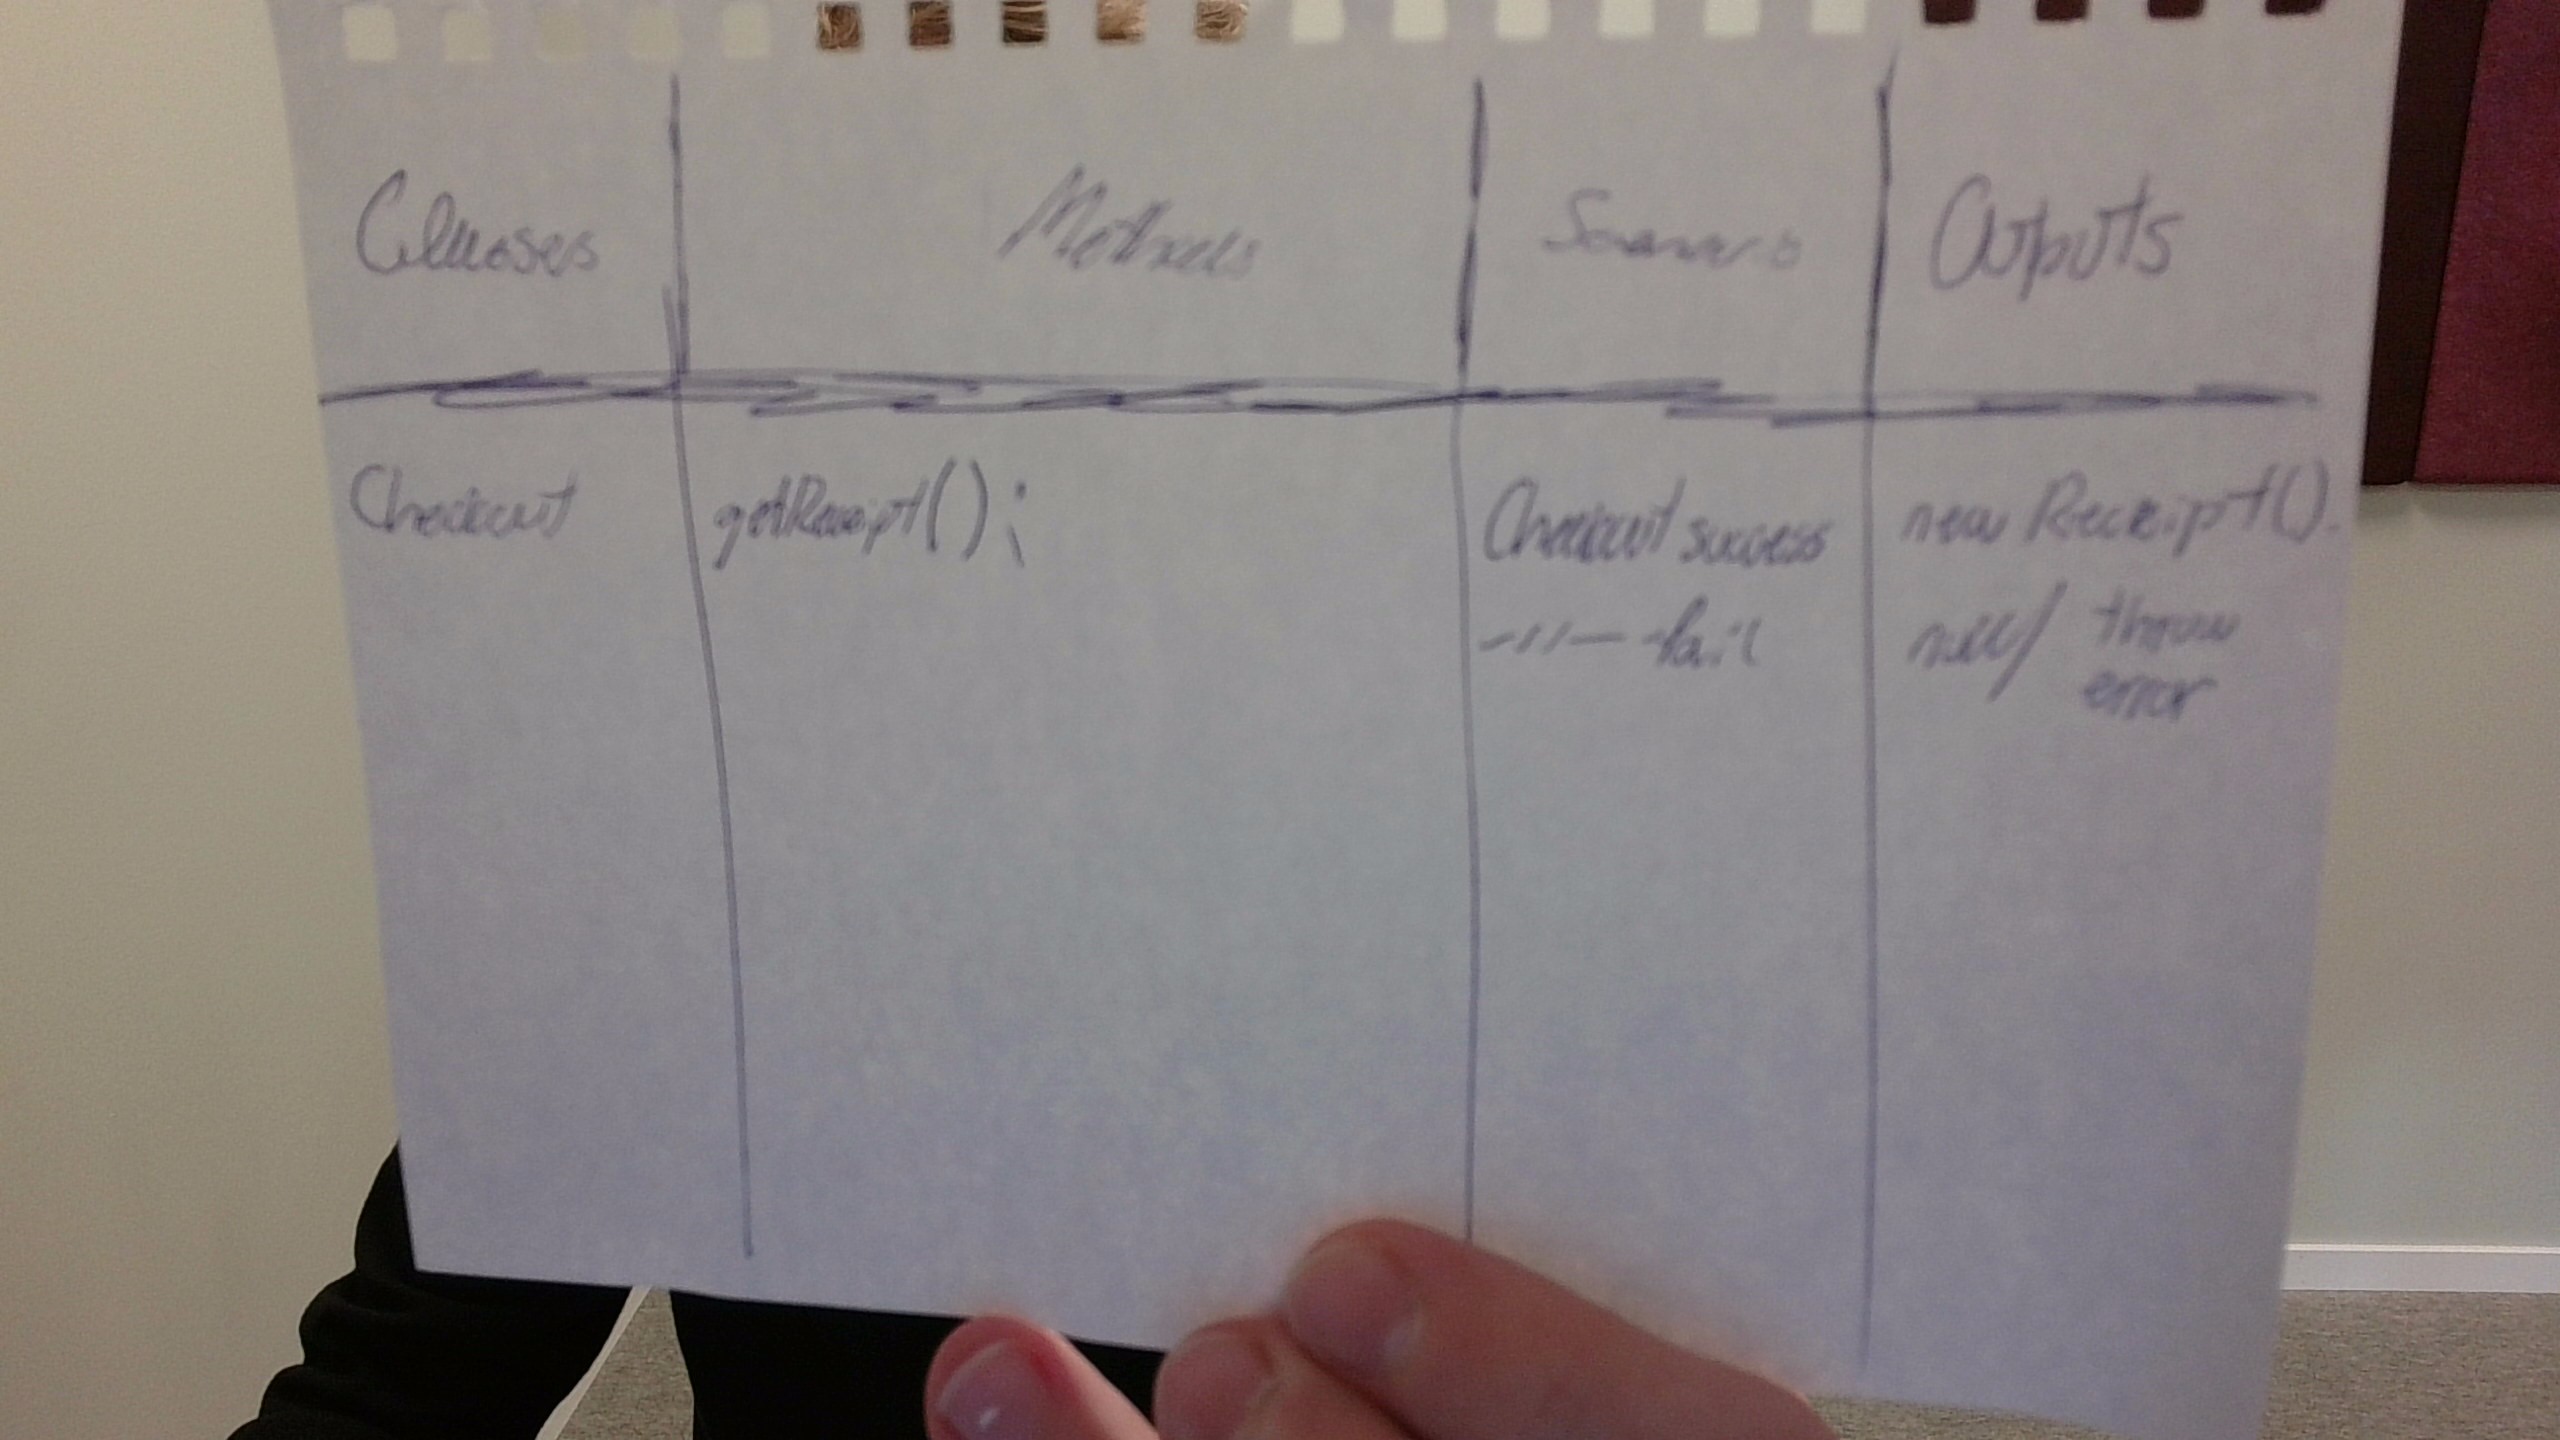 Classes Methods Scenario Outputs
Checkout getReceipt(); Checkout success new Receipt().
-//- fail null/ throw
error